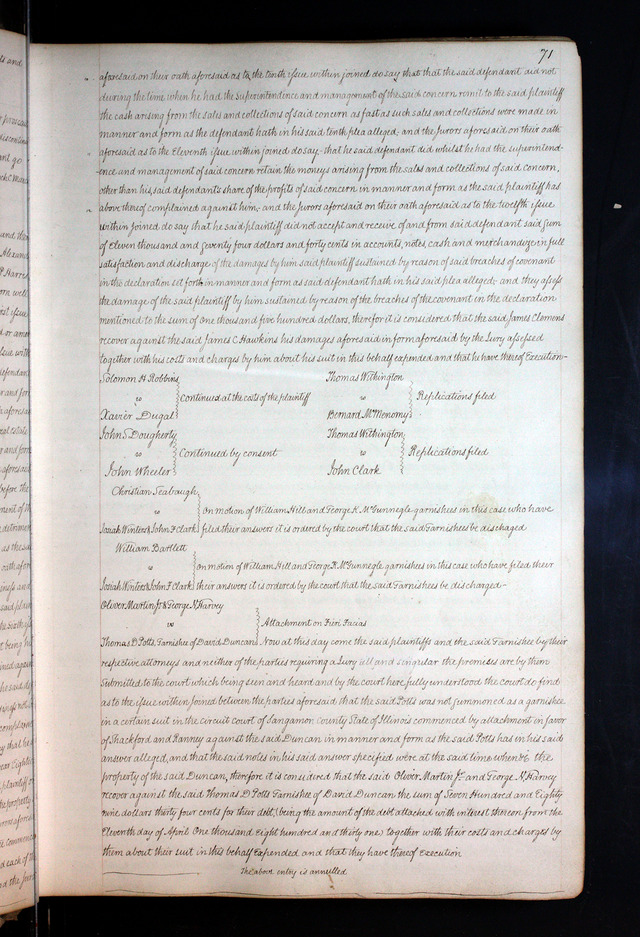 71
aforesaid on their oath aforesaid as to the tenth issue within joined do say that that the said defendant did not
during the time when he had the superintendence and management of the said concern remit to the said plaintiff
the cash arising from the sales and collections of said concern as fast as such sales and collections were made in
manner and form as the defendant hath in his said tenth plea alleged; and the Jurors aforesaid on their oath
aforesaid as to the Eleventh issue within joined do say that he said defendant did whilst he had the superintend-
ence and management of said concern retain the moneys arising from the sales and collections of said concern,
other than his, said defendant's share of the profits of said concern in manner and form as the said plaintiff has
above thereof complained against him, and the Jurors aforesaid on their oath aforesaid as to the twelfth issue
within joined do say that he said plaintiff did not accept and receive of and from said defendant said sum
of eleven thousand and seventy four dollars and forty cents in accounts, notes, cash and merchandize in full
satisfaction and discharge of the damages by him said plaintiff sustained by reason of said breaches of covenant
in the declaration set forth in manner and form as said defendant hath in his said plea alleged; and they assess
the damage of the said plaintiff by him sustained by reason of the breaches of the covenant in the declaration
mentioned to the sum of one thousand and five hundred dollars, therefore it is considered that the said James Clemens
recover against the said James C Hawkins his damages aforesaid in form aforesaid by the Jury assessed
together with his costs and charges by him about his suit in this behalf expended and that he have thereof Execution-
Solomon H Robbins
vs Continued at the costs of the plaintiff
Xavier Dugal
Thomas Withington
vs Replications filed
Bernard McMenomy
John S Dougherty
vs Continued by consent
John Wheeler
Thomas Withington
vs Replications filed
John Clark
Christian Seabaugh
vs On motion of William Hill and George K McGunnegle garnishees in this case who have
Josiah Winters & John F Clark filed their answers it is ordered by the court that the said Garnishees be discharged
William Bartlett
vs On motion of William Hill and George K McGunnegle garnishees in this case who have filed their
Josiah Winters & John F Clark their answers it is ordered by the court that the said Garnishees be discharged-
Oliver Martin Jr & George N Harvey
vs Attachment on Fieri Facias
Thomas D Potts Garnishee of David Duncan Now at this day come the said plaintiffs and the said Garnishee by their
respective attorneys and neither of the parties requiring a Jury all and singular the premises are by them
submitted to the court which being seen and heard and by the court here fully understood the court do find
as to the issue within joined between the parties aforesaid that the said Potts was not summoned as a garnishee
in a certain suit in the circuit court of Sangamon county State of Illinois commenced by attachment in favor
of Shackford and Ranney against the said Duncan in manner and form as the said Potts has in his said
answer alleged, and that the said notes in his said answer specified were at the said time when &c the
property of the said Duncan, therefore it is considered that the said Oliver Martin Jr and George N Harvey
recover against the said Thomas D Potts Garnishee of David Duncan the sum of Seven Hundred and Eighty
nine dollars thirty four cents for their debt, (being the amount of the debt attached with interest thereon from the
Eleventh day of April One thousand Eight hundred and thirty one) together with their costs and charges by
them about their suit in this behalf Expended and that they have thereof Execution
The above entry is annulled